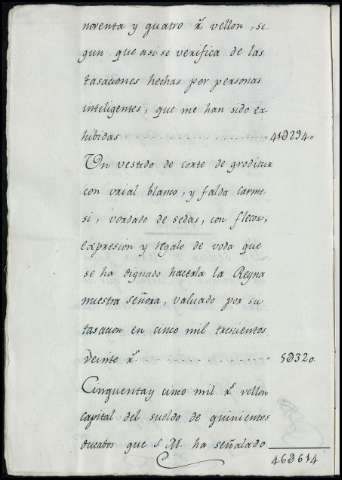 noventa y quatro r.^s vellon, se
gun que asi se verifica de las
tasaciones hechas por personas
inteligentes, que me han sido ex
hibidas 41@294.
Un vestido de corte de grodituz
con brial blanco, y falda carme
si, bordado de sedas, con flecos,
expresion y regalo de voda que
se ha dignado hacerla la Reyna
nuestra señora, valuado por su
tasacion en cinco mil trescientos
veinte r.^s 5@320.
Cinquenta y cinco mil r.^s vellon
capital del sueldo de quinientos
ducados que S.M. ha señalado
46@614